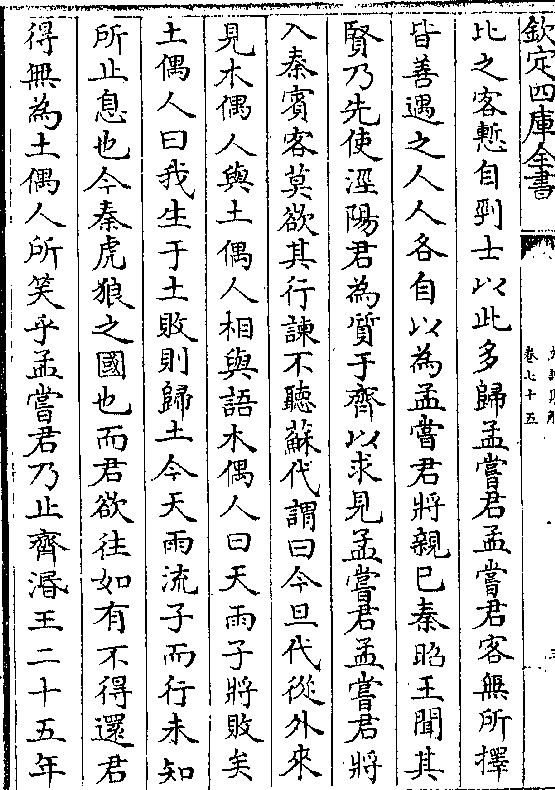 欽定四庫全書
卷七十五
比之客慙自剄士以此多歸孟嘗君孟嘗君客無所擇
皆善遇之人人各自以為孟嘗君將親已秦昭王聞其
賢乃先使涇陽君為質于齊以求見孟嘗君孟嘗君將
入秦賓客莫欲其行諫不聽蘇代謂曰今旦代從外來
見木偶人與土偶人相與語木偶人曰天雨子將敗矣
土偶人曰我生于土敗則歸土今天雨流子而行未知
所止息也今秦虎狼之國也而君欲往如有不得還君
得無為土偶人所笑乎孟嘗君乃止齊湣王二十五年